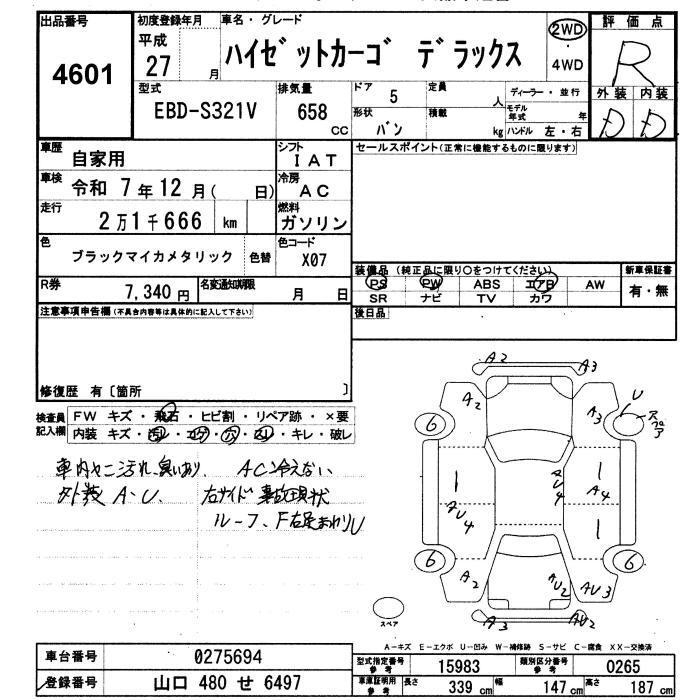 出品番号 初度登録年月 車名・グレード 評価点
4601 平成 27 月 ハイゼットカーゴ デラックス 2WD ・ 4WD R
型式 排気量 ドア 定員 ディーラー・並行 外装 内装
EBD-S321V 658 CC 5 人 モデル年式 年 D D
形状 バン 積載 kg ハンドル 左・右
車歴 自家用 シフト IAT セールスポイント(正常に機能するものに限ります)
車検 令和 7 年 12 月( 日) 冷房 AC
走行 2万1千666 km 燃料 ガソリン
色 ブラックマイカメタリック 色替 色コード X07
装備品 (純正品に限り○をつけてください) 新車保証書
R券 7,340 円 名変通知期限 月 日
PS PW ABS エアB AW 有・無
SR ナビ TV カワ
注意事項申告欄(不具合内容等は具体的に記入して下さい)
後日品
修復歴 有〔箇所 〕
検査員記入欄 FW キズ・飛石・ヒビ割・リペア跡・×要
内装 キズ・ヨゴレ・コゲ・穴・ヌレ・キレ・破レ
車内ヤニ汚れ、臭いあり、 AC冷えない
外装 A・U 右サイド事故現状
ルーフ、F右足まわりU
A2 A3
A2 A3 U スペア
6 6
A4
AU4 AU4
6 6
A2 AU2 AU3
A3 AU2
スペア
A-キズ E-エクボ U-凹み W-補修跡 S-サビ C-腐食 XX-交換済
車台番号 0275694 型式指定番号 参考 15983 類別区分番号 参考 0265
登録番号 山口 480 せ 6497 車庫証明用 参考 長さ 339 cm 幅 147 cm 高さ 187 cm